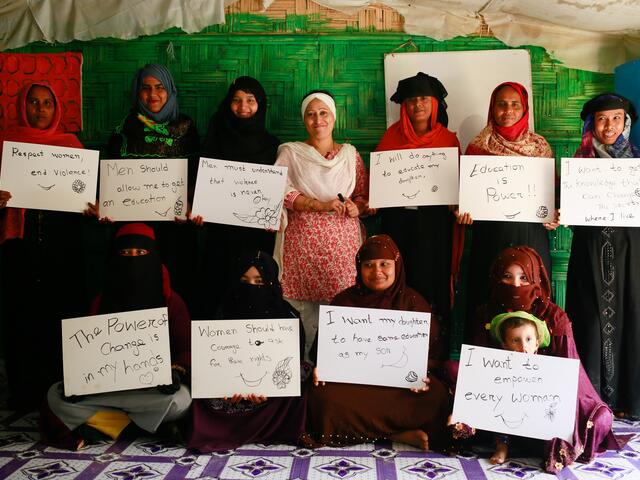 Respect women,
end violence!
Men Should
allow me to get
an education
Men must understand
that violence
is never
Okay
I will do anything
to educate my
daughter.
Education
is
Power!!
I want to get
The knowledge that
can
the society
where I live
The Power of
Change is
in my hands
Women Should have
Courage to ask
For their rights
I want my daughter
to have same education
as my son
I want to
empower
every woman